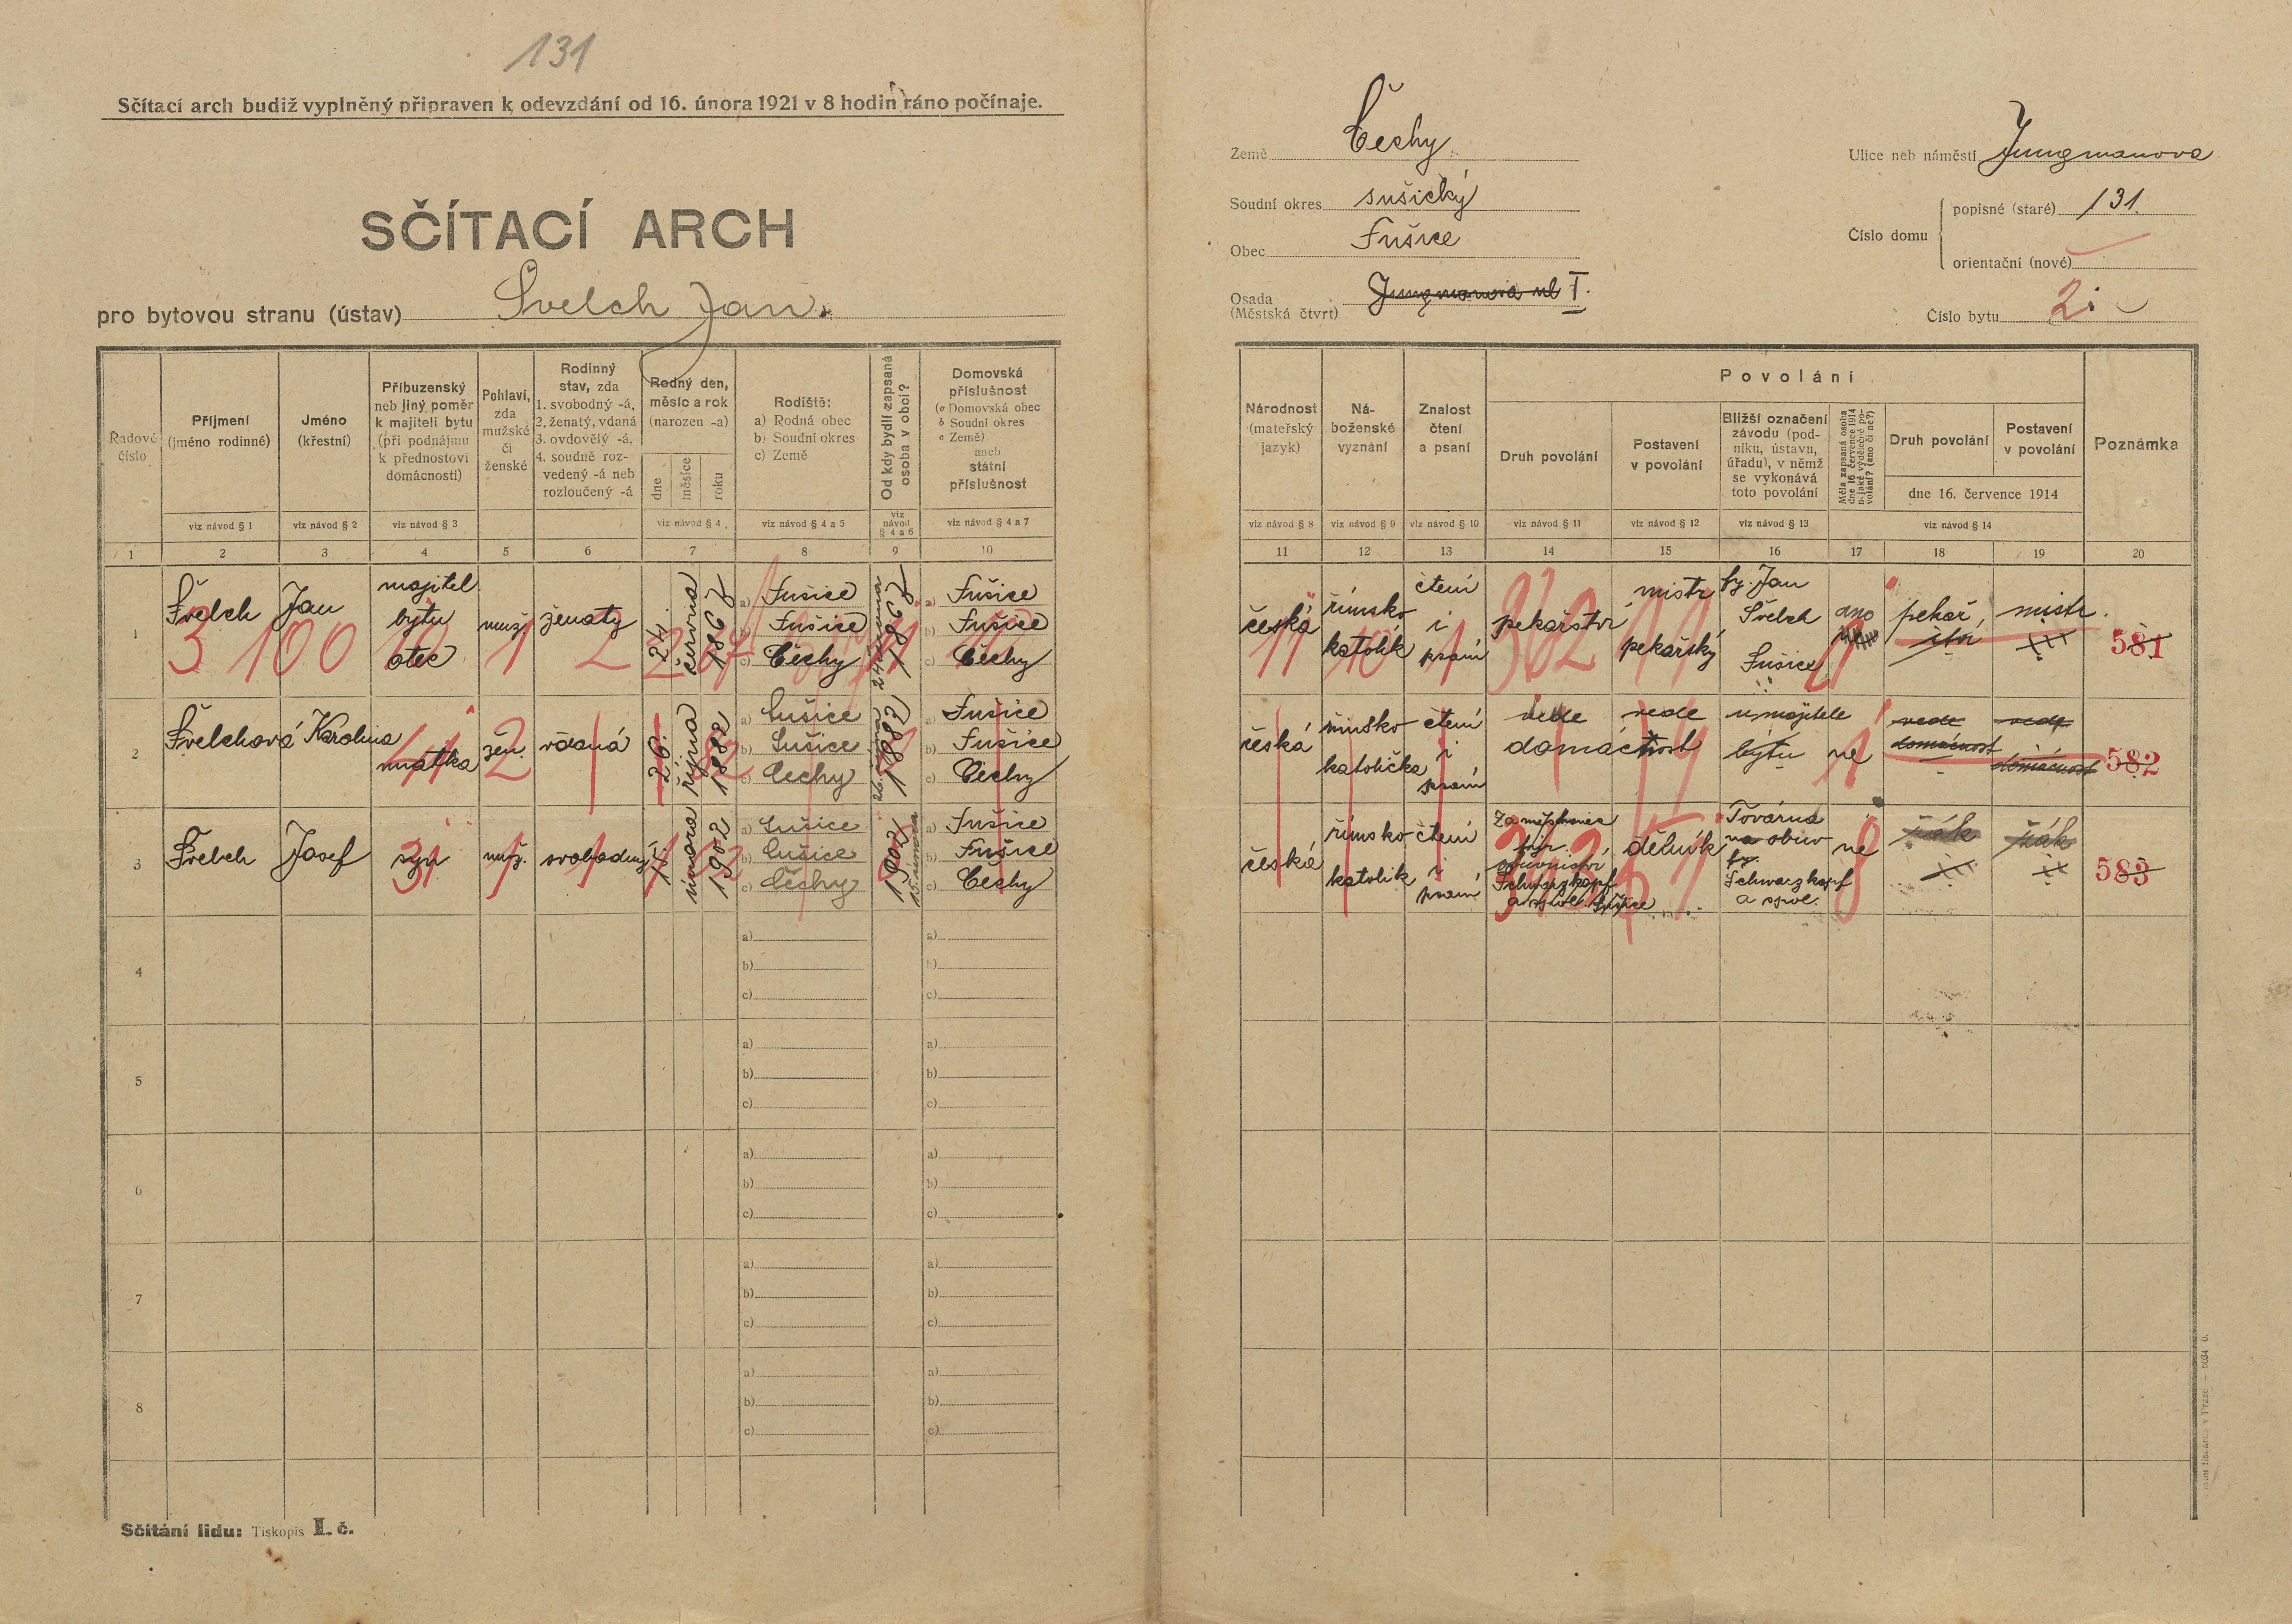 131
Sčítací arch budiž vyplněný připraven k odevzdání od 16. února 1921 v 8 hodin ráno počínaje.
SČÍTACÍ ARCH
pro bytovou stranu (ústav) Švelch Jan.
Země Čechy
Soudní okres sušický
Obec Sušice
Osada
(Městská čtvrt) Jungmanova ul I.
Ulice neb náměstí Jungmanova
Číslo domu
popisné (staré) 131.
orientační (nové)
Číslo bytu 2
Řadové
číslo
Příjmení
(jméno rodinné)
viz návod § 1
Jméno
(křestní)
viz návod § 2
Příbuzenský
neb jiný poměr
k majiteli bytu
(při podnájmu
k přednostovi
domácnosti)
viz návod § 3
Pohlaví,
zda
mužské
či
ženské
Rodinný
stav, zda
1. svobodný -á,
2. ženatý, vdaná
3. ovdovělý -á,
4. soudně roz-
vedený -á neb
rozloučený -á
Rodný den,
měsíc a rok
(narozen -a)
dne
měsíce
roku
viz návod § 4
Rodiště:
a) Rodná obec
b) Soudní okres
c) Země
viz návod § 4 a 5
Od kdy bydlí zapsaná
osoba v obci?
viz
návod
§ 4 a 6
Domovská
příslušnost
(a Domovská obec
b Soudní okres
c Země)
aneb
státní
příslušnost
viz návod § 4 a 7
Národnost
(mateřský
jazyk)
viz návod § 8
Ná-
boženské
vyznání
viz návod § 9
Znalost
čtení
a psaní
viz návod § 10
Povolání
Druh povolání
viz návod § 11
Postavení
v povolání
viz návod § 12
Bližší označení
závodu (pod-
niku, ústavu,
úřadu), v němž
se vykonává
toto povolání
viz návod § 13
Měla zapsaná osoba
dne 16. července 1914
nějaké výdělečné po-
volání? (ano či ne?)
Druh povolání
Postavení
v povolání
dne 16. července 1914
viz návod § 14
Poznámka
1 2 3 4 5 6 7 8 9 10
11 12 13 14 15 16 17 18 19 20
1
Švelch Jan
majitel
bytu
otec
muž. ženatý
24. června 1867
a) Sušice
b) Sušice
c) Čechy
1867
a) Sušice
b) Sušice
c) Čechy
česká
římsko
katolík
čtení
i
psaní
pekařství
mistr
pekařský
fy. Jan
Švelch
Sušice
ano
pekař
mistr
581
3 100 10 1 2
11 10 1 362 11
2
Švelchová Karolina
matka
žen. vdaná
26. října 1882
a) Sušice
b) Sušice
c) Čechy
1882
a) Sušice
b) Sušice
c) Čechy
česká
římsko
katolička
čtení
i
psaní
vede
domácnost
vede
u majitele
bytu
ne
vede
domácnost
vede
domácnost
582
3
Švelch Josef
syn
muž. svobodný
února 1902
a) Sušice
b) Sušice
c) Čechy
1902
a) Sušice
b) Sušice
c) Čechy
česká
římsko
katolík
čtení
i
psaní
Schwarzkopf
a spol. Sušice
dělník
Továrna
na obuv
fy.
Schwarzkopf
a spol.
ne
žák
žák
583
4
a)
b)
c)
a)
b)
c)
5
a)
b)
c)
a)
b)
c)
6
a)
b)
c)
a)
b)
c)
7
a)
b)
c)
a)
b)
c)
8
a)
b)
c)
a)
b)
c)
Sčítání lidu: Tiskopis I. č.